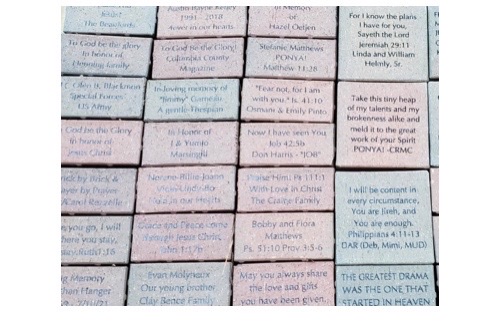 Jesus!
The Beaulords
To God be the glory
In honor of
Denning family
Special Forces
US Army
God be the Glory
In honor of
Jesus Christ
by Brick &
by Prayer
you go, I will
you stay,
Ruth1:16
Austin Bayne
1991 2018
in our hearts
To God be the Glory!
Columbia County
Magazine
In loving memory of
"Jimmy"
A gentle Thespian
In Honor of
J & Yumio
Norene Billie-Joann
Vicky
in our Hearts
Grace and Peace come
through Jesus Christ,
John 1:17b
Evan Molyneux
Our young brother
Clay Bence Family
In Memory
of
Hazel Oetjen
Stefanie Matthews
PONYA!
Matthew 11:28
"Fear not, for I am
with you." Is. 41:10
Osmani & Emily Pinto
Now I have seen You
Job 42:5b
Don Harris - "JOB"
Praise Him! Ps 111:1
With Love in Christ
The Craine Family
Bobby and Fiora
Matthews
Ps. 51:10 Prov 3:5-6
May you always share
the love and gifts
you have been given
For I know the plans
I have for you,
Sayeth the Lord
Jeremiah 29:11
Linda and William
Helmly, Sr.
Take this tiny heap
of my talents and my
brokenness alike and
meld it to the great
work of your Spirit
PONYA! -CRMC
I will be content in
every circumstance,
You are Jireh, and
You are enough.
Philippians 4:11-13
DAR (Deb, Mimi, MUD)
THE GREATEST DRAMA
WAS THE ONE THAT
STARTED IN HEAVEN